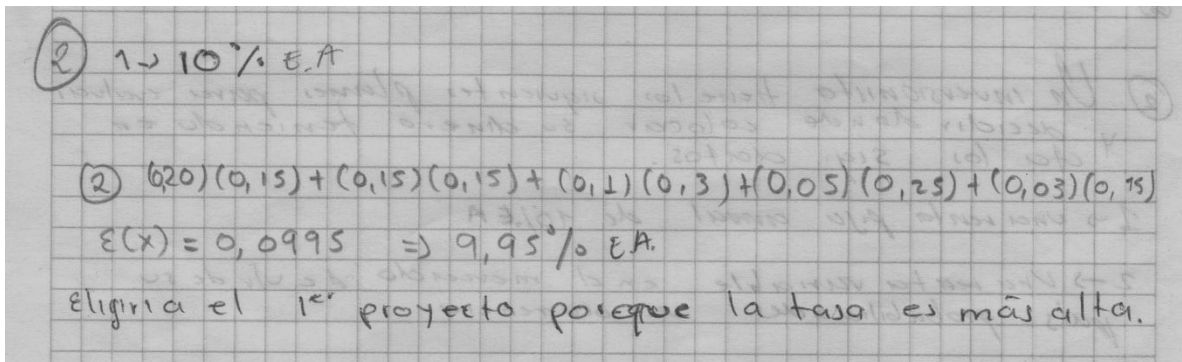 ② 1 → 10 % E.A
② (0,20)(0,15)+(0,15)(0,15)+(0,1)(0,3)+(0,05)(0,25)+(0,03)(0,15)
E(X) = 0,0995 ⇒ 9,95 % E.A.
Eligiria el 1er proyecto porque la tasa es más alta.